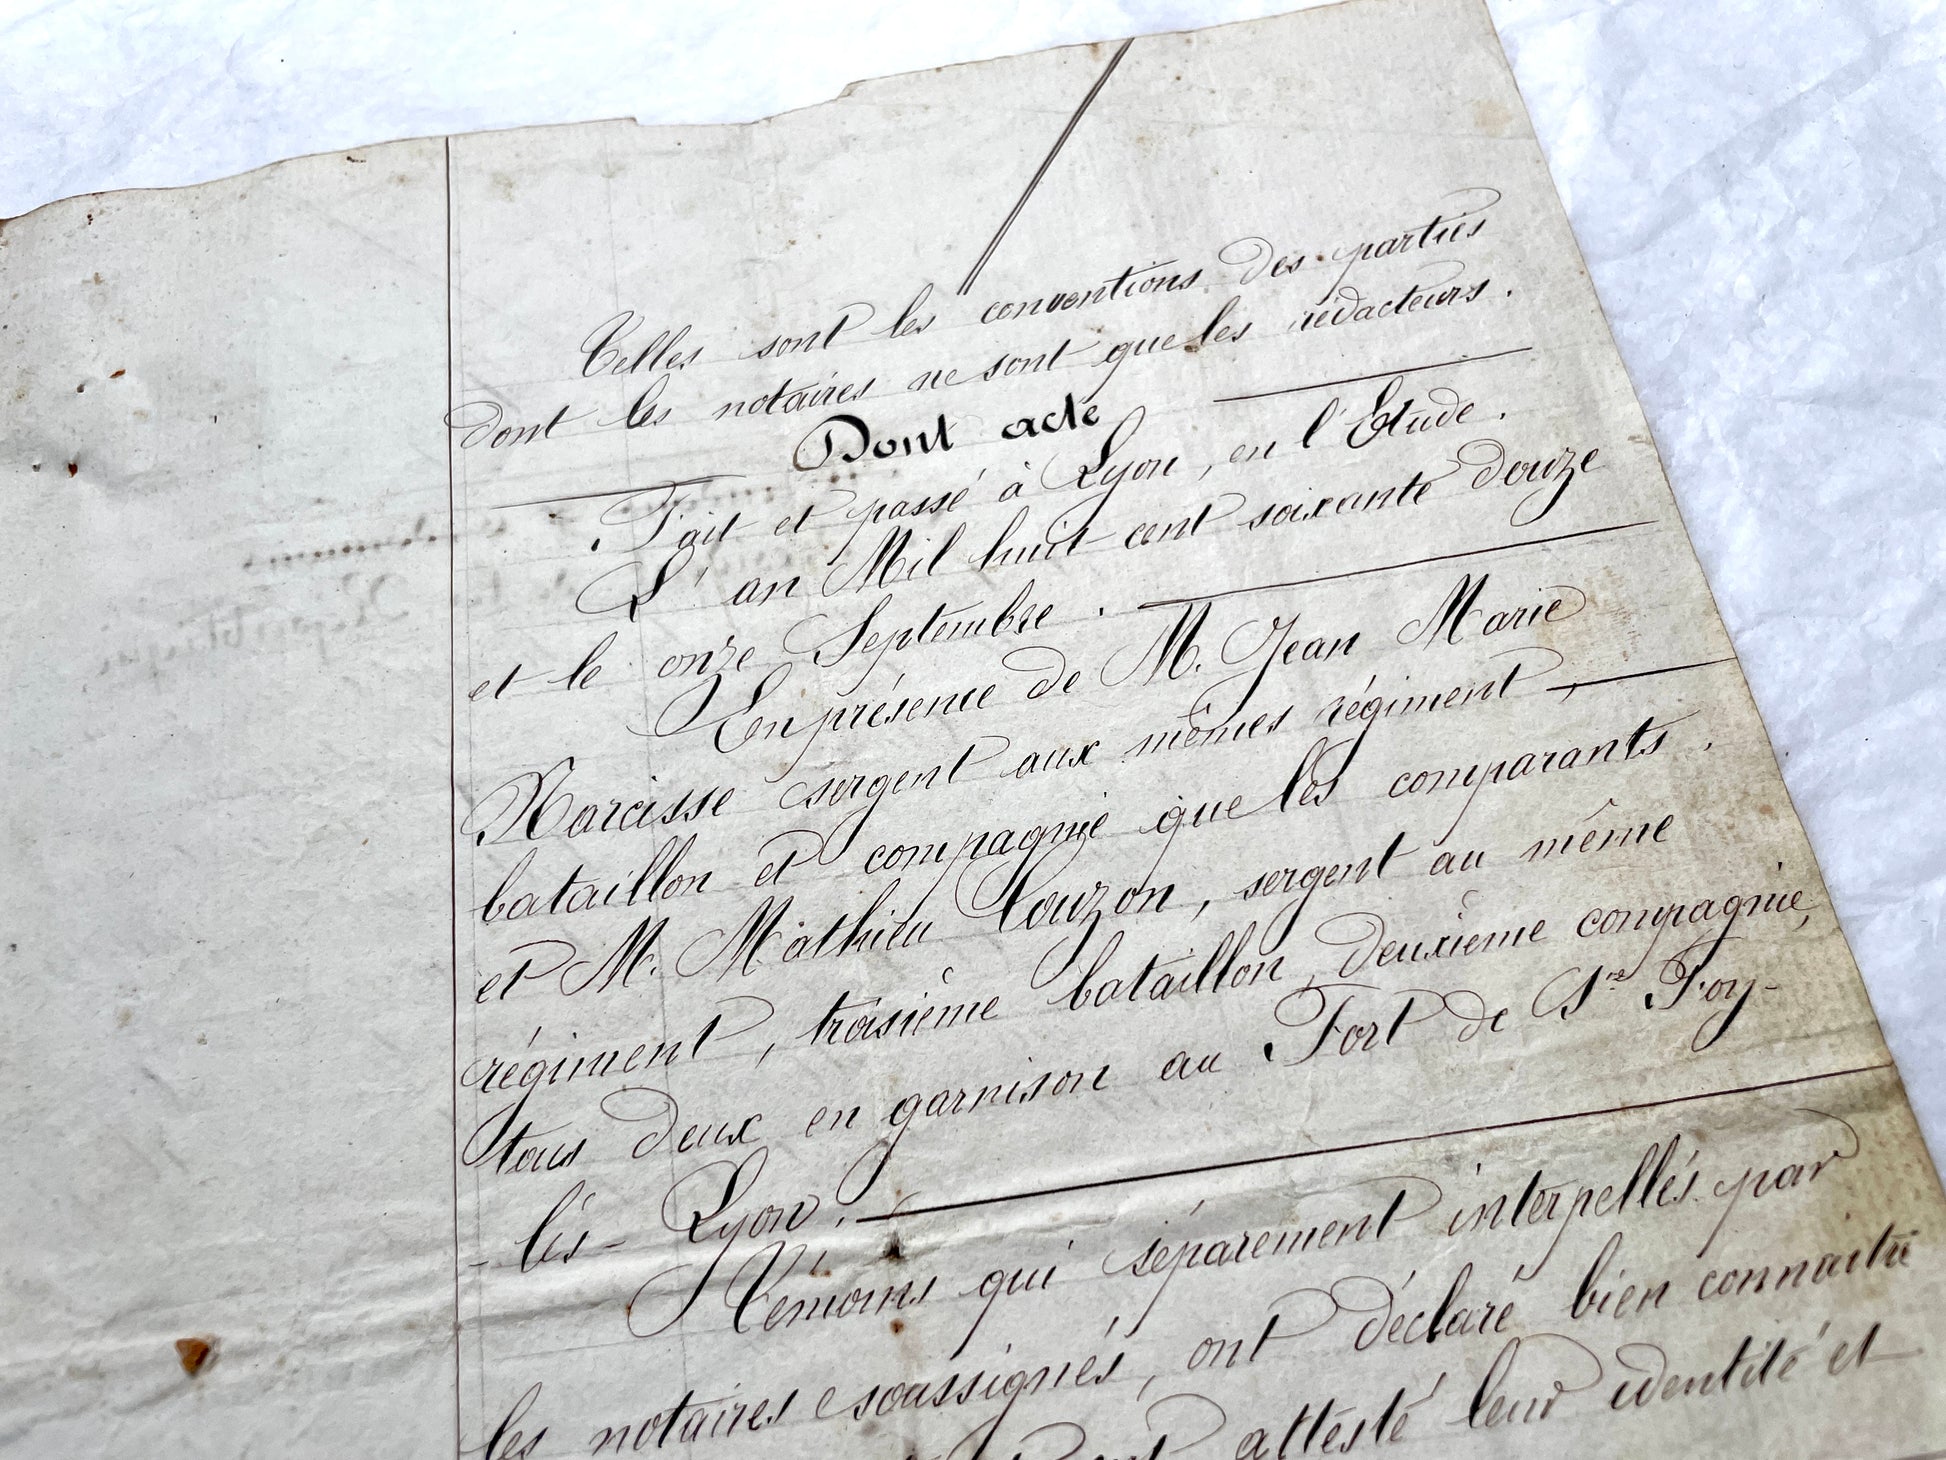 Telles sont les conventions des parties
dont les notaires ne sont que les rédacteurs.
Dont acte
Fait et passé à Lyon, en l'Etude.
L'an Mil huit cent soixante douze
et le onze Septembre.
En présence de M. Jean Marie
Narcisse sergent aux mêmes régiment,
bataillon et compagnie que les comparants.
et M. Mathieu Couzon, sergent au même
régiment, troisième bataillon, deuxième compagnie,
tous deux en garnison au Fort de Ste Foy-
-lès-Lyon.
Témoins qui séparement interpellés par
les notaires soussignés, ont déclaré bien connaitre
attesté leur identité et